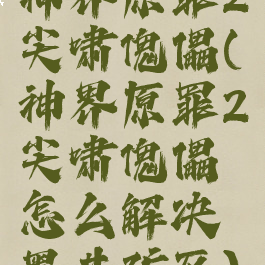 神界原罪2
尖啸傀儡(
神界原罪2
尖啸傀儡
怎么解决